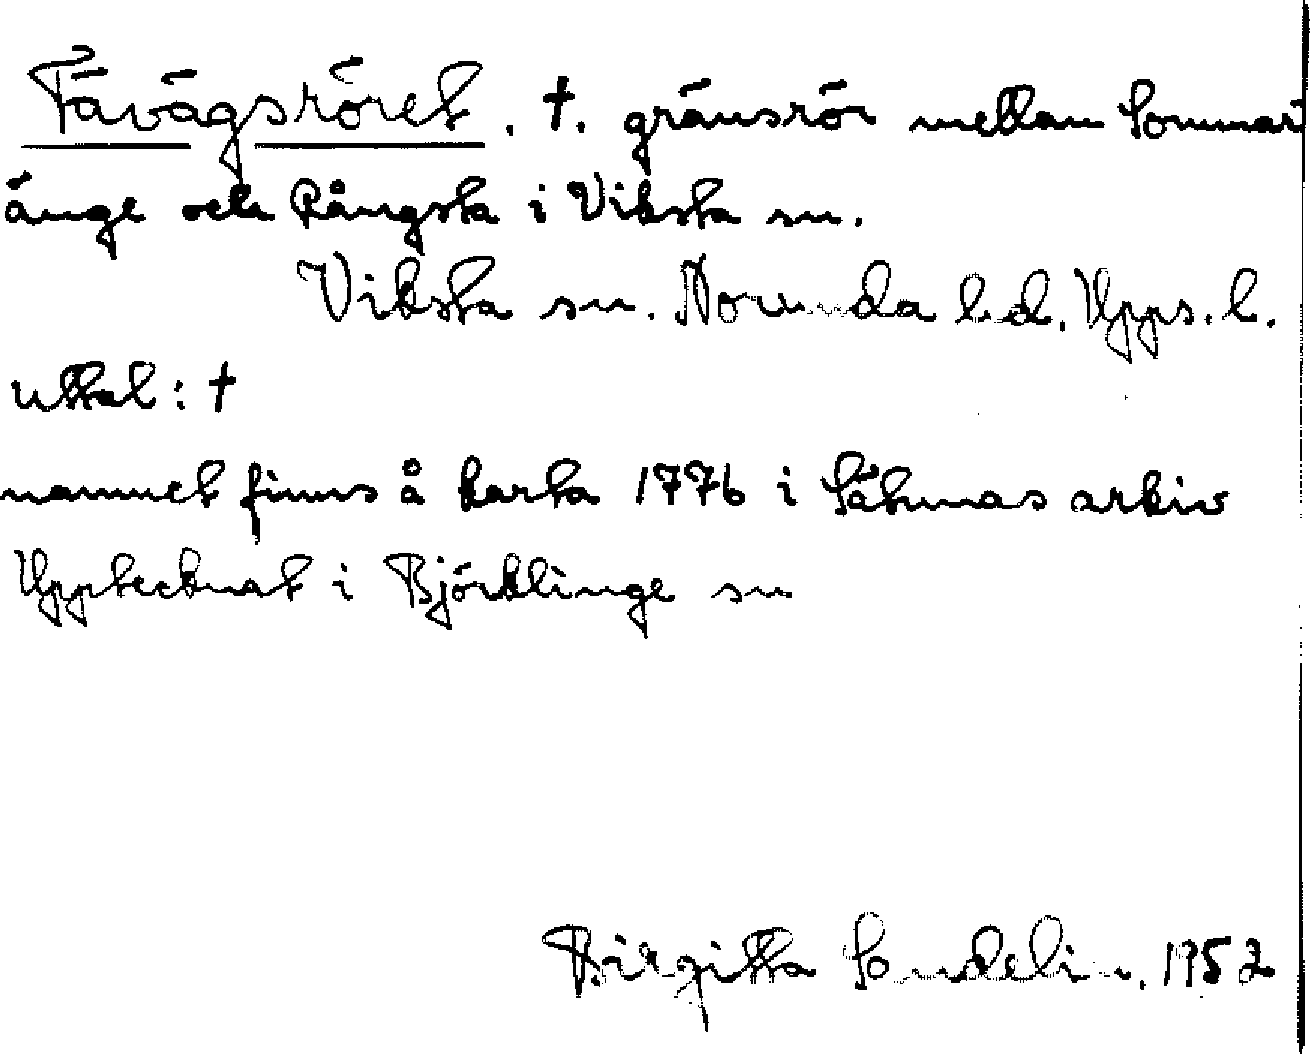 Fävägsröret. †. gränsrör mellan Sommar
änge och Rångsta i Viksta sn.
Viksta sn. Norunda h.d. Upps. l.
uttal: †
namnet finns å karta 1776 i Lähmas arkiv
Upptecknat i Björklinge sn
Birgitta Sundelin. 1952